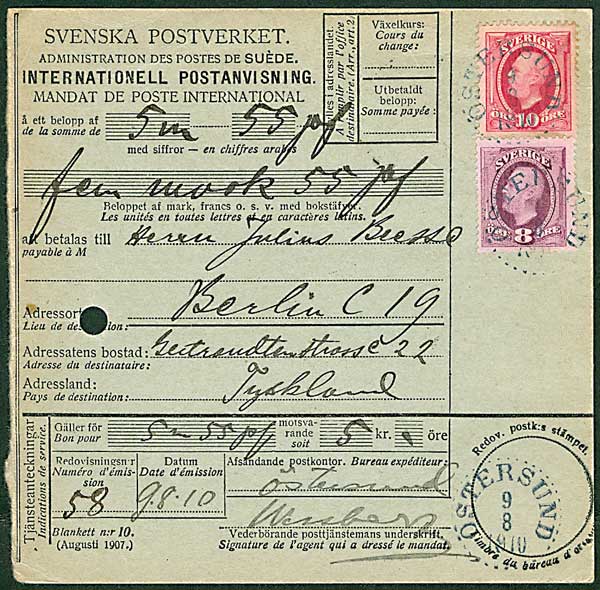 SVENSKA POSTVERKET.
ADMINISTRATION DES POSTES DE SUÈDE.
INTERNATIONELL POSTANVISNING.
MANDAT DE POSTE INTERNATIONAL
à ett belopp af 5 m 55 pf
de la somme de
med siffror — en chiffres arabes
fem mark 55 pf
Beloppet af mark, francs o. s. v. med bokstäfver.
Les unités en toutes lettres et en caractères latins.
att betalas till Herrn Julius
payable à M
Berlin C 19
Adressort
Lieu de destination:
Adressatens bostad: 22
Adresse du destinataire:
Adressland: Tyskland
Pays de destination:
Ifylles i adresslandet.
A remplir par l'office
destinataire. (Arr., art. 2)
Växelkurs:
Cours du
change:
Utbetaldt
belopp:
Somme payée:
SVERIGE
10
ÖRE
ÖSTERSUND
SVERIGE
8
ÖRE
ÖSTERSUND
Tjänsteanteckningar
Indications de service.
Gäller för 5 m 55 pf motsva- 5 kr. öre
Bon pour rande
soit
Redovisningsnr Datum
Numéro d'émis- Date d'émission
sion
58 9.8.10
Blankett n:r 10.
(Augusti 1907.)
Afsändande postkontor. Bureau expéditeur:
Östersund
Vederbörande posttjänstemans underskrift.
Signature de l'agent qui a dressé le mandat.
Redov. postk:s stämpel.
ÖSTERSUND
9
8
1910
Timbre du bureau d'